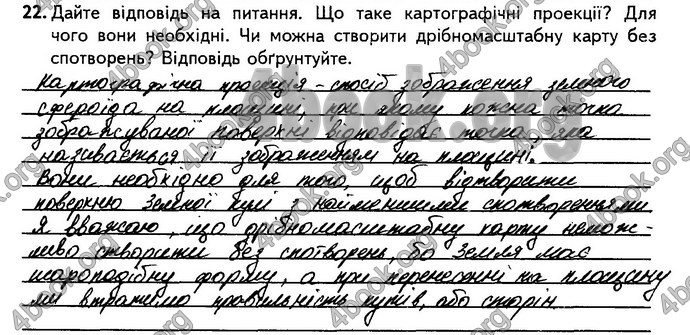 22. Дайте відповідь на питання. Що таке картографічні проекції? Для
чого вони необхідні. Чи можна створити дрібномасштабну карту без
спотворень? Відповідь обґрунтуйте.
Картографічна проекція - спосіб зображення земного
сфероїда на площині, при якому кожна точка
зображуваної поверхні відповідає точка, яка
називається її зображенням на площині.
Вони необхідно для того, щоб відтворити
поверхню земної кулі з найменшими спотвореннями
Я вважаю, що дрібномасштабну карту немож-
ливо створити без спотворень, бо Земля має
шароподібну форму, а при перенесенні на площину
ми втратимо правильність кутів, або сторін
4book.org